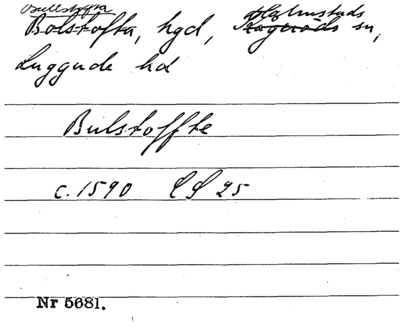 Bullstofta
Bolstofta, hgd, Högseröds sn,
Luggude hd
Bulstoffte
c. 1590 CS 25
Nr 5681.